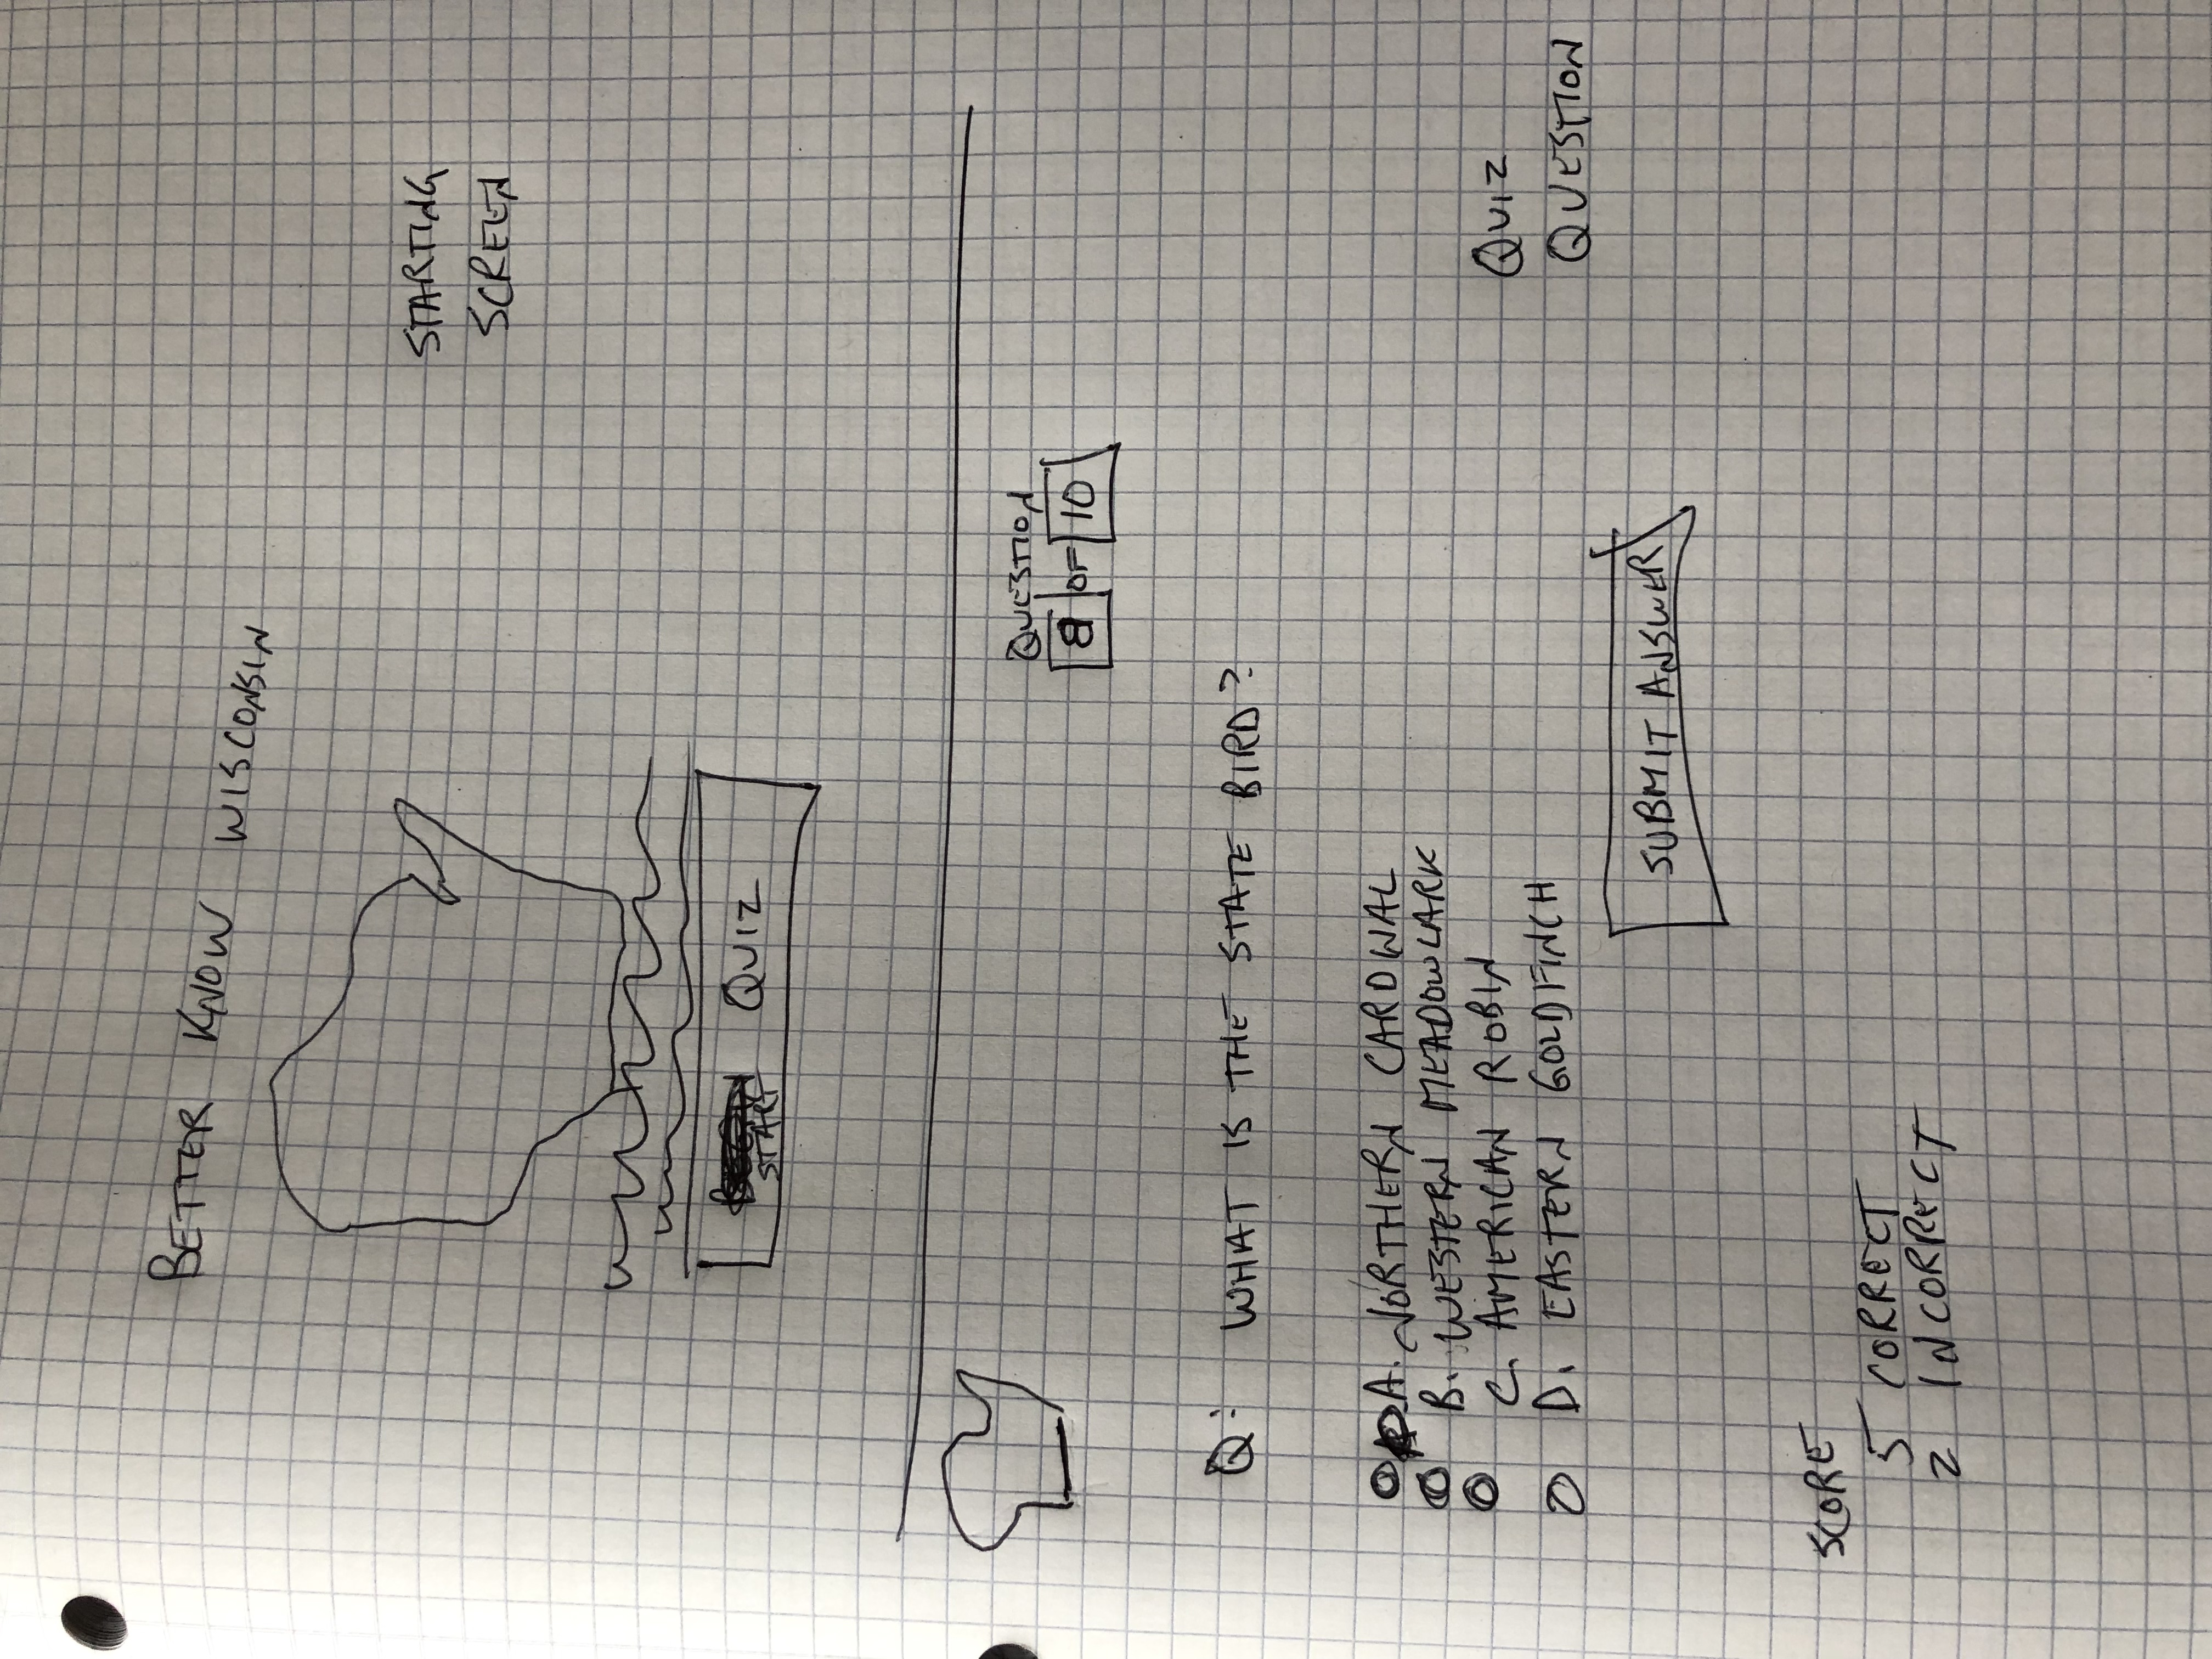 BETTER KNOW WISCONSIN
STARTING
SCREEN
START QUIZ
QUESTION
8 OF 10
Q: WHAT IS THE STATE BIRD?
A. NORTHERN CARDINAL
B. WESTERN MEADOWLARK
C. AMERICAN ROBIN
D. EASTERN GOLDFINCH
QUIZ
QUESTION
SUBMIT ANSWER
SCORE
5 CORRECT
2 INCORRECT